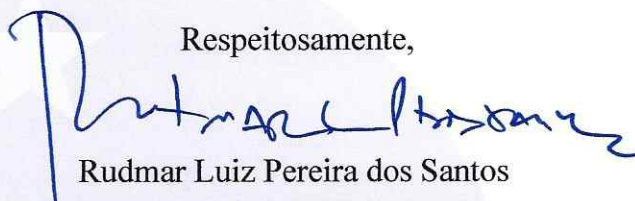 Respeitosamente,
Rudmar Luiz Pereira dos Santos